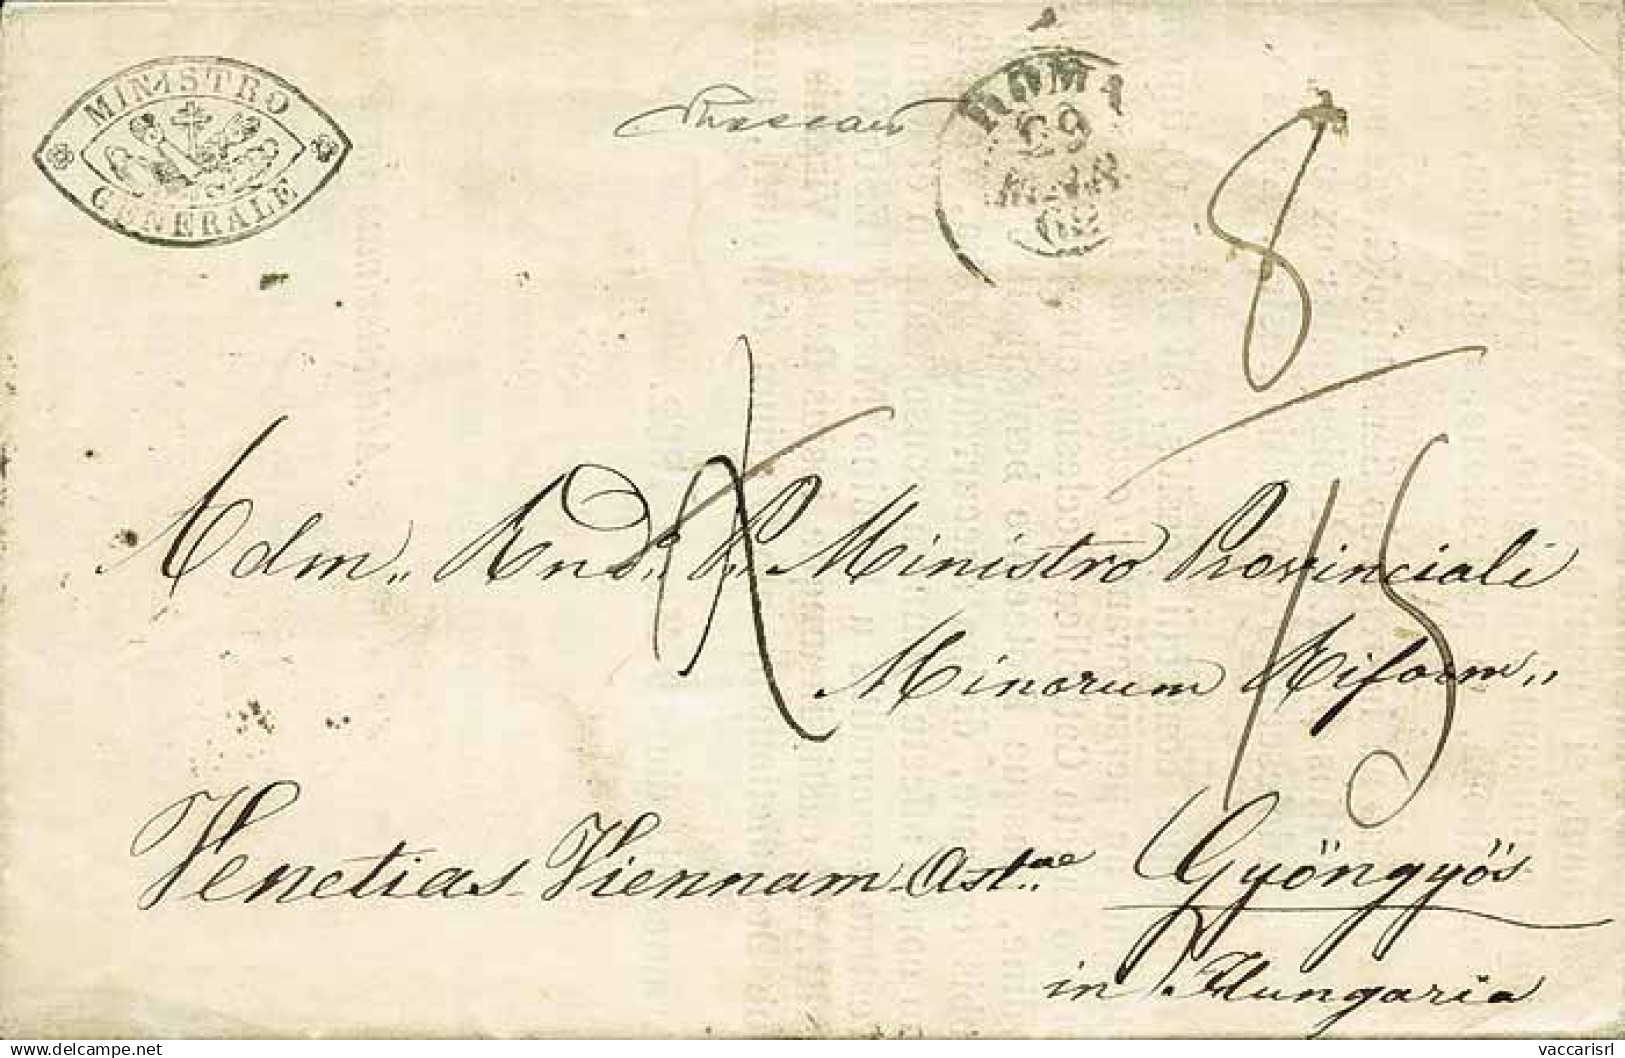 MINISTRO
GENERALE
ROMA
29
MAR
68
8
15
Adm,, Rnd,, P. Ministro Provinciali
Minorum Riform,,
Venetias Viennam Ast,,ae Gyöngyös
in Hungaria
delcampe.net
vaccarisrl